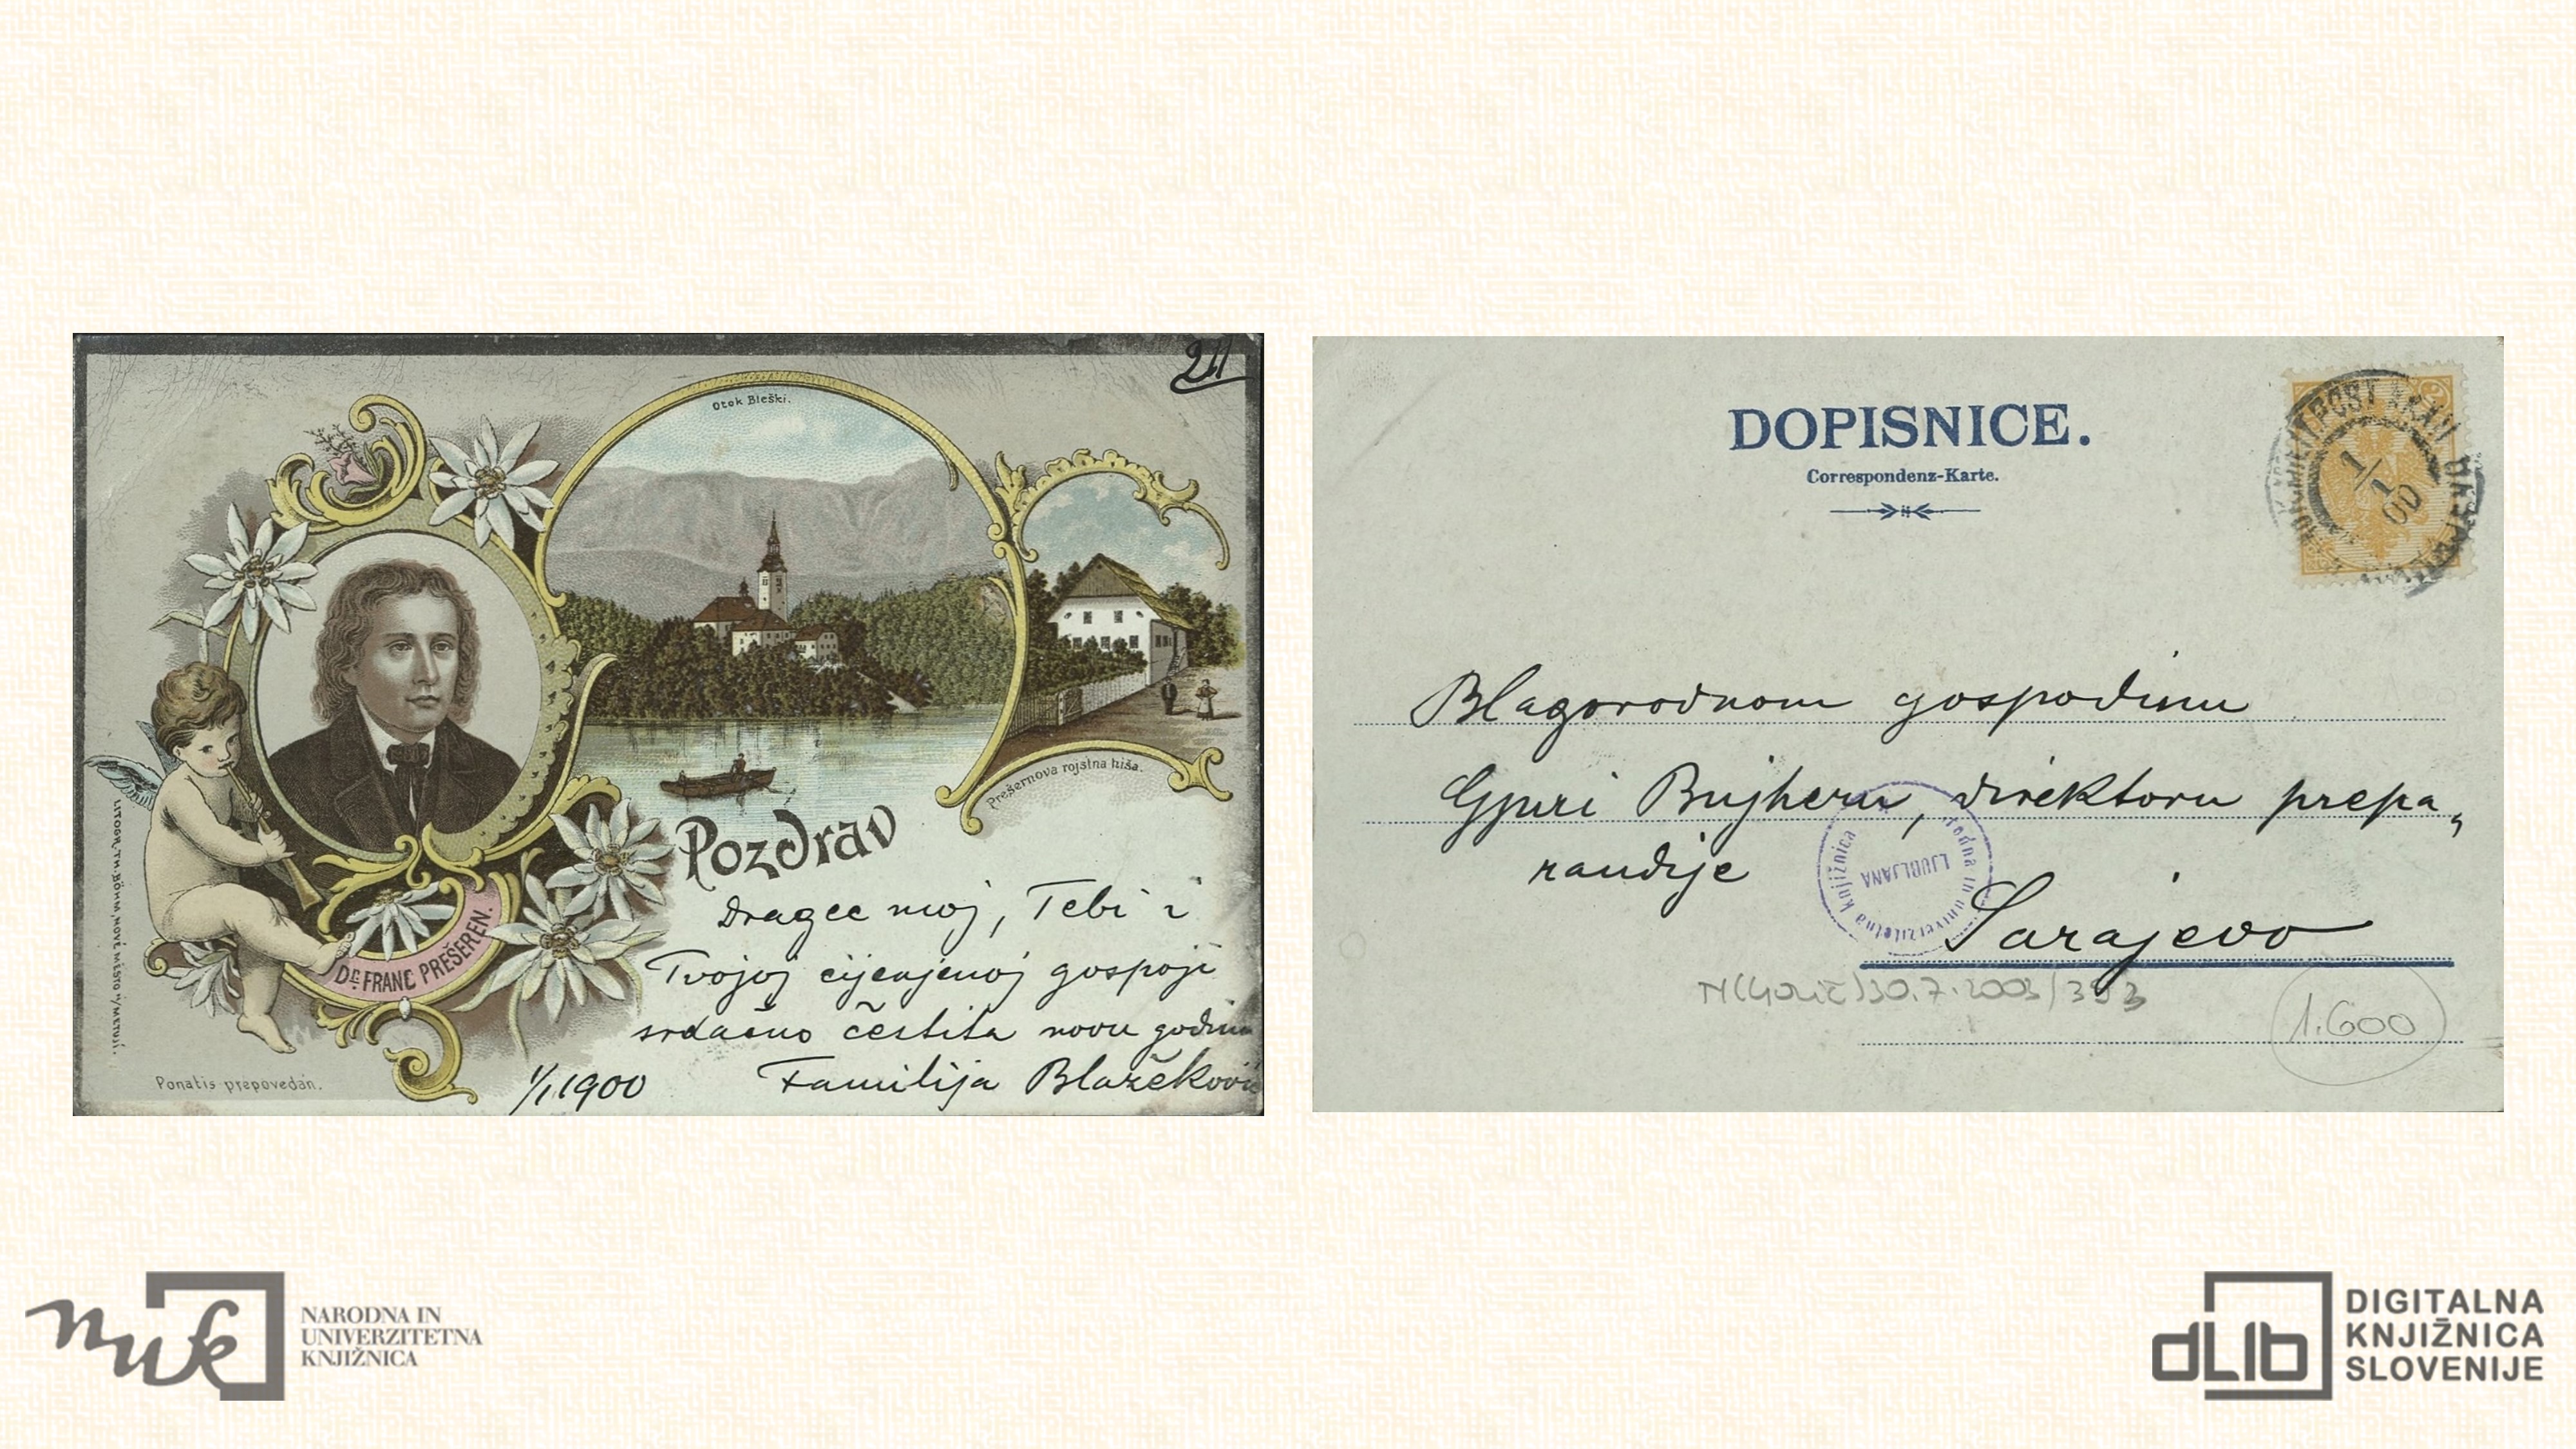 21
Otok Bleški.
Prešernova rojstna hiša.
Pozdrav
Dragec moj, Tebi i
Tvojoj cijenjenoj gospoji
srdačno čestita novu godinu
Familija Blažeković
1/1 1900
Dr. FRANC PREŠEREN.
LITOGR. TH. BÖHMA, NOVÉ MĚSTO n/METUJÍ.
Ponatis prepovedan.
DOPISNICE.
Correspondenz-Karte.
1/1 00
Blagorodnom gospodinu
Gjuri Bujheru, direktoru prepa„
randije
Sarajevo
univerzitetna knjižnica
LJUBLJANA
30.7.2003/393
1.600
nuk
NARODNA IN
UNIVERZITETNA
KNJIŽNICA
dLib
DIGITALNA
KNJIŽNICA
SLOVENIJE